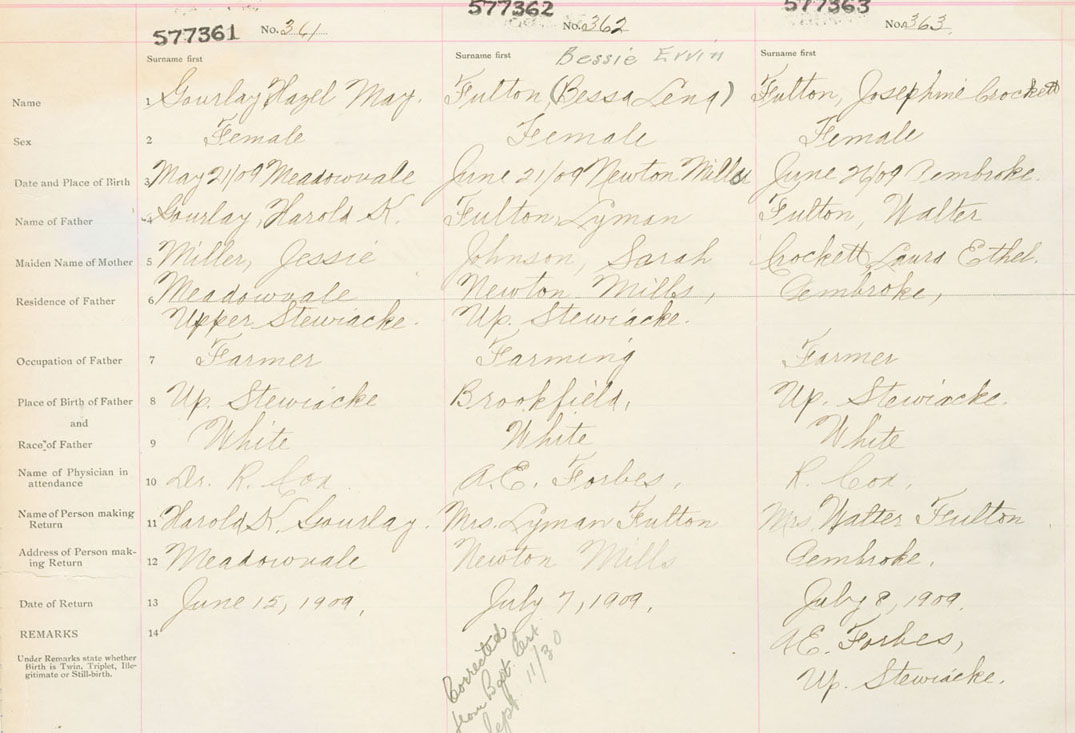 577361 No. 361 577362 No. 362 577363 No. 363
Surname first Surname first Bessie Ervin Surname first
Name 1 Gourlay, Hazel May. Fulton, (Bessa Lena) Fulton, Josephine Crockett
Sex 2 Female Female Female
Date and Place of Birth 3 May 21/09 Meadowvale June 21/09 Newton Mills June 26/09 Pembroke.
Name of Father 4 Gourlay, Harold K. Fulton, Lyman Fulton, Walter
Maiden Name of Mother 5 Miller, Jessie Johnson, Sarah Crockett, Laura Ethel.
Residence of Father 6 Meadowvale Newton Mills, Pembroke,
Upper Stewiacke. Up. Stewiacke.
Occupation of Father 7 Farmer Farming Farmer
Place of Birth of Father 8 Up. Stewiacke Brookfield, Up. Stewiacke.
and
Race of Father 9 White White White
Name of Physician in
attendance 10 Dr. R. Cox A.E. Forbes, R. Cox,
Name of Person making
Return 11 Harold K. Gourlay. Mrs. Lyman Fulton Mrs Walter Fulton
Address of Person mak-
ing Return 12 Meadowvale Newton Mills Pembroke.
Date of Return 13 June 15, 1909, July 7, 1909, July 8, 1909.
REMARKS 14 A.E. Forbes,
Under Remarks state whether
Birth is Twin, Triplet, Ille-
gitimate or Still-birth.
Up. Stewiacke.
Corrected
from Bapt. Cert.
Sept. 11/30